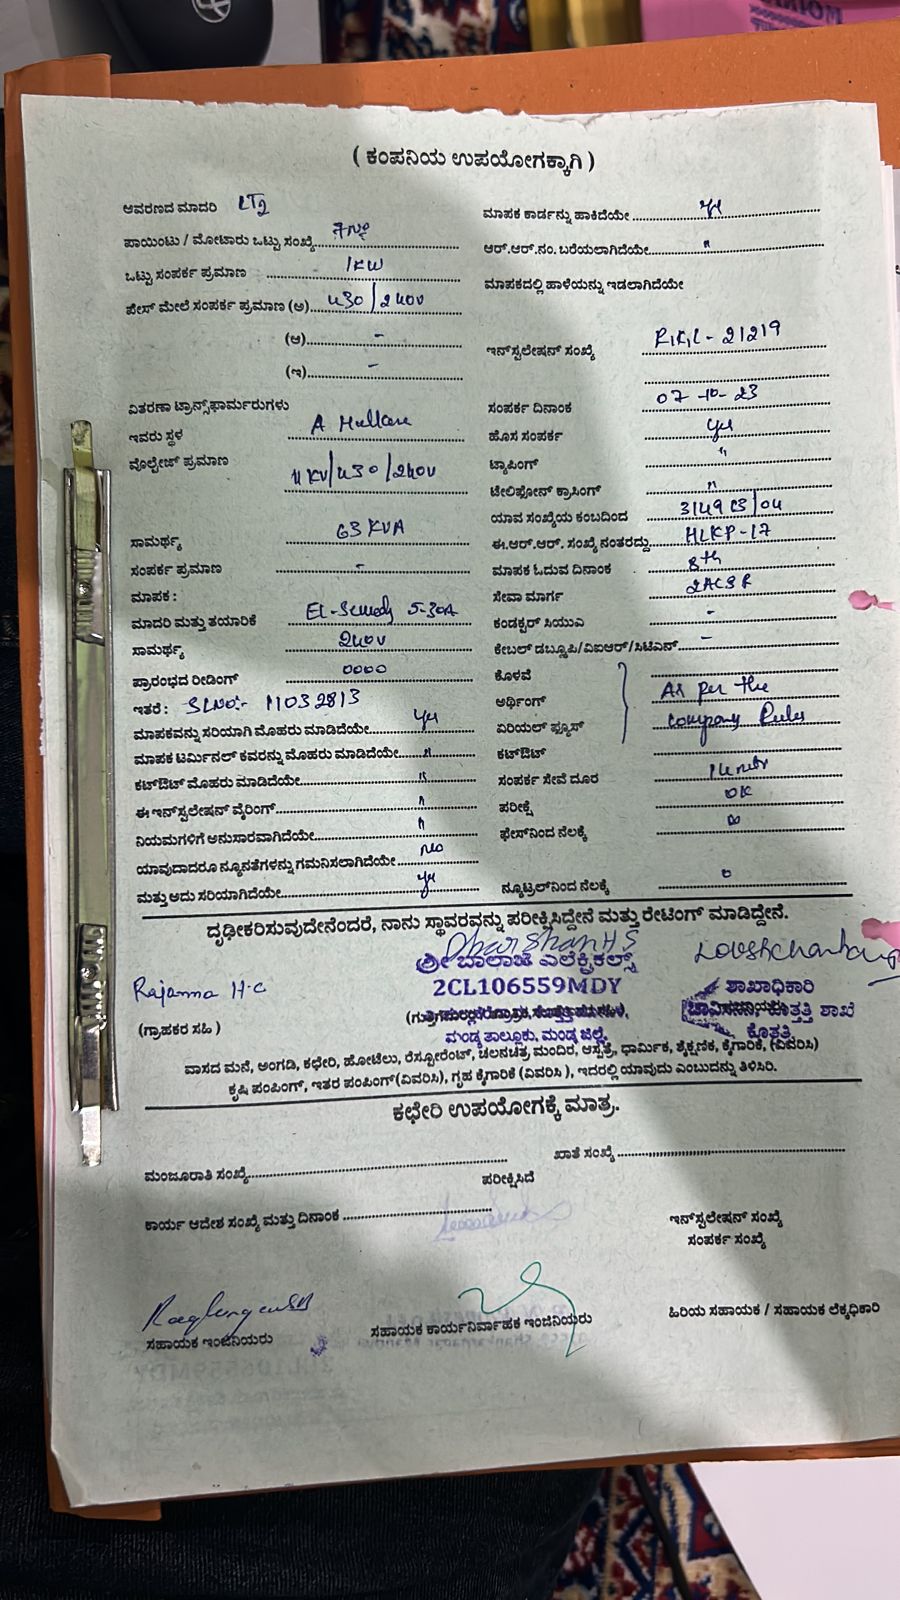 ( ಕಂಪನಿಯ ಉಪಯೋಗಕ್ಕಾಗಿ )
ಆವರಣದ ಮಾದರಿ LT2
ಮಾಪಕ ಕಾರ್ಡನ್ನು ಹಾಕಿದೆಯೇ Yes
ಪಾಯಿಂಟು / ಮೋಟಾರು ಒಟ್ಟು ಸಂಖ್ಯೆ
ಆರ್.ಆರ್.ನಂ. ಬರೆಯಲಾಗಿದೆಯೇ "
ಒಟ್ಟು ಸಂಪರ್ಕ ಪ್ರಮಾಣ 1KW
ಮಾಪಕದಲ್ಲಿ ಹಾಳೆಯನ್ನು ಇಡಲಾಗಿದೆಯೇ
ಪೇಸ್ ಮೇಲೆ ಸಂಪರ್ಕ ಪ್ರಮಾಣ (ಅ) 430/240V
(ಆ) -
ಇನ್‌ಸ್ಟಲೇಷನ್ ಸಂಖ್ಯೆ 21219
(ಇ) -
ವಿತರಣಾ ಟ್ರಾನ್ಸ್‌ಫಾರ್ಮರುಗಳು
ಸಂಪರ್ಕ ದಿನಾಂಕ 07-10-23
ಇವರು ಸ್ಥಳ A Hullare
ಹೊಸ ಸಂಪರ್ಕ Yes
ವೊಲ್ಟೇಜ್ ಪ್ರಮಾಣ 11KV/430/240V
ಟ್ಯಾಪಿಂಗ್ "
ಟೇಲಿಫೋನ್ ಕ್ರಾಸಿಂಗ್ "
ಯಾವ ಸಂಖ್ಯೆಯ ಕಂಬದಿಂದ
ಸಾಮರ್ಥ್ಯ 63 KVA
ಈ.ಆರ್.ಆರ್. ಸಂಖ್ಯೆ ನಂತರದ್ದು HLKP-17
ಸಂಪರ್ಕ ಪ್ರಮಾಣ -
ಮಾಪಕ ಓದುವ ದಿನಾಂಕ 8th
ಮಾಪಕ :
ಸೇವಾ ಮಾರ್ಗ 2ACSR
ಮಾದರಿ ಮತ್ತು ತಯಾರಿಕೆ 5-30A
ಕಂಡಕ್ಟರ್ ಸಿಯುಎ -
ಸಾಮರ್ಥ್ಯ 240V
ಕೇಬಲ್ ಡಬ್ಲೂಪಿ/ವಿಐಆರ್/ಸಿಟಿಎಸ್ -
ಪ್ರಾರಂಭದ ರೀಡಿಂಗ್ 0000
ಕೊಳವೆ
ಇತರೆ : SLNO:- 11032813
ಅರ್ಥಿಂಗ್ As per the
ಮಾಪಕವನ್ನು ಸರಿಯಾಗಿ ಮೊಹರು ಮಾಡಿದೆಯೇ Yes
ಏರಿಯಲ್ ಫ್ಯೂಸ್ company Rules
ಮಾಪಕ ಟರ್ಮಿನಲ್ ಕವರನ್ನು ಮೊಹರು ಮಾಡಿದೆಯೇ "
ಕಟ್‌ಔಟ್
ಕಟ್‌ಔಟ್ ಮೊಹರು ಮಾಡಿದೆಯೇ "
ಸಂಪರ್ಕ ಸೇವೆ ದೂರ
ಈ ಇನ್‌ಸ್ಟಲೇಷನ್ ವೈರಿಂಗ್ "
ಪರೀಕ್ಷೆ OK
ನಿಯಮಗಳಿಗೆ ಅನುಸಾರವಾಗಿದೆಯೇ "
ಫೇಸ್‌ನಿಂದ ನೆಲಕ್ಕೆ ∞
ಯಾವುದಾದರೂ ನ್ಯೂನತೆಗಳನ್ನು ಗಮನಿಸಲಾಗಿದೆಯೇ No
ಮತ್ತು ಅದು ಸರಿಯಾಗಿದೆಯೇ Yes
ನ್ಯೂಟ್ರಲ್‌ನಿಂದ ನೆಲಕ್ಕೆ 0
ದೃಢೀಕರಿಸುವುದೇನೆಂದರೆ, ನಾನು ಸ್ಥಾವರವನ್ನು ಪರೀಕ್ಷಿಸಿದ್ದೇನೆ ಮತ್ತು ರೇಟಿಂಗ್ ಮಾಡಿದ್ದೇನೆ.
Dharshan H S
ಶ್ರೀ ಬಾಲಾಜಿ ಎಲೆಕ್ಟ್ರಿಕಲ್ಸ್
Rajanna H-C
2CL106559MDY
ಶಾಖಾಧಿಕಾರಿ
ಚಾವಿಸನಿನಿ, ಕೊತ್ತತ್ತಿ ಶಾಖೆ
(ಗ್ರಾಹಕರ ಸಹಿ)
ಮಂಡ್ಯ ತಾಲ್ಲೂಕು, ಮಂಡ್ಯ ಜಿಲ್ಲೆ.
ಕೊತ್ತತ್ತಿ
ವಾಸದ ಮನೆ, ಅಂಗಡಿ, ಕಛೇರಿ, ಹೋಟೆಲು, ರೆಸ್ಟೋರೆಂಟ್, ಚಲನಚಿತ್ರ ಮಂದಿರ, ಆಸ್ಪತ್ರೆ, ಧಾರ್ಮಿಕ, ಶೈಕ್ಷಣಿಕ, ಕೈಗಾರಿಕೆ, (ವಿವರಿಸಿ)
ಕೃಷಿ ಪಂಪಿಂಗ್, ಇತರ ಪಂಪಿಂಗ್(ವಿವರಿಸಿ), ಗೃಹ ಕೈಗಾರಿಕೆ (ವಿವರಿಸಿ ), ಇದರಲ್ಲಿ ಯಾವುದು ಎಂಬುದನ್ನು ತಿಳಿಸಿರಿ.
ಕಛೇರಿ ಉಪಯೋಗಕ್ಕೆ ಮಾತ್ರ.
ಮಂಜೂರಾತಿ ಸಂಖ್ಯೆ
ಖಾತೆ ಸಂಖ್ಯೆ
ಪರೀಕ್ಷಿಸಿದೆ
ಕಾರ್ಯ ಆದೇಶ ಸಂಖ್ಯೆ ಮತ್ತು ದಿನಾಂಕ
ಇನ್‌ಸ್ಟಲೇಷನ್ ಸಂಖ್ಯೆ
ಸಂಪರ್ಕ ಸಂಖ್ಯೆ
ಸಹಾಯಕ ಇಂಜಿನಿಯರು
ಸಹಾಯಕ ಕಾರ್ಯನಿರ್ವಾಹಕ ಇಂಜಿನಿಯರು
ಹಿರಿಯ ಸಹಾಯಕ / ಸಹಾಯಕ ಲೆಕ್ಕಧಿಕಾರಿ